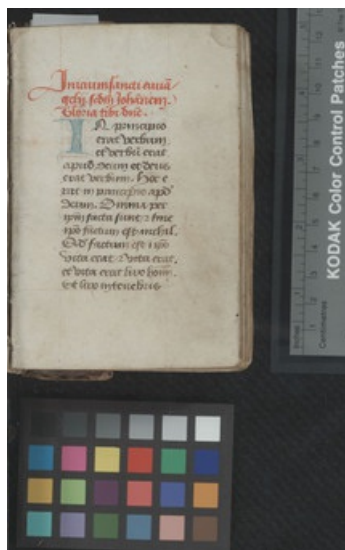 Inicium sancti euua
gelij. scdm Johanem.
Gloria tibi dne.
IN principio
erat verbum
et verbu erat
apud deum et deus
erat verbum. Hoc e
rat in principio apd
deum. Omnia per
ipm facta sunt z sine
ipo factum est nichil.
Qd factum est i ipo
vita erat. z vita erat.
et vita erat lux hom.
et lux in tenebris
KODAK Color Control Patches
Inches
Centimetres